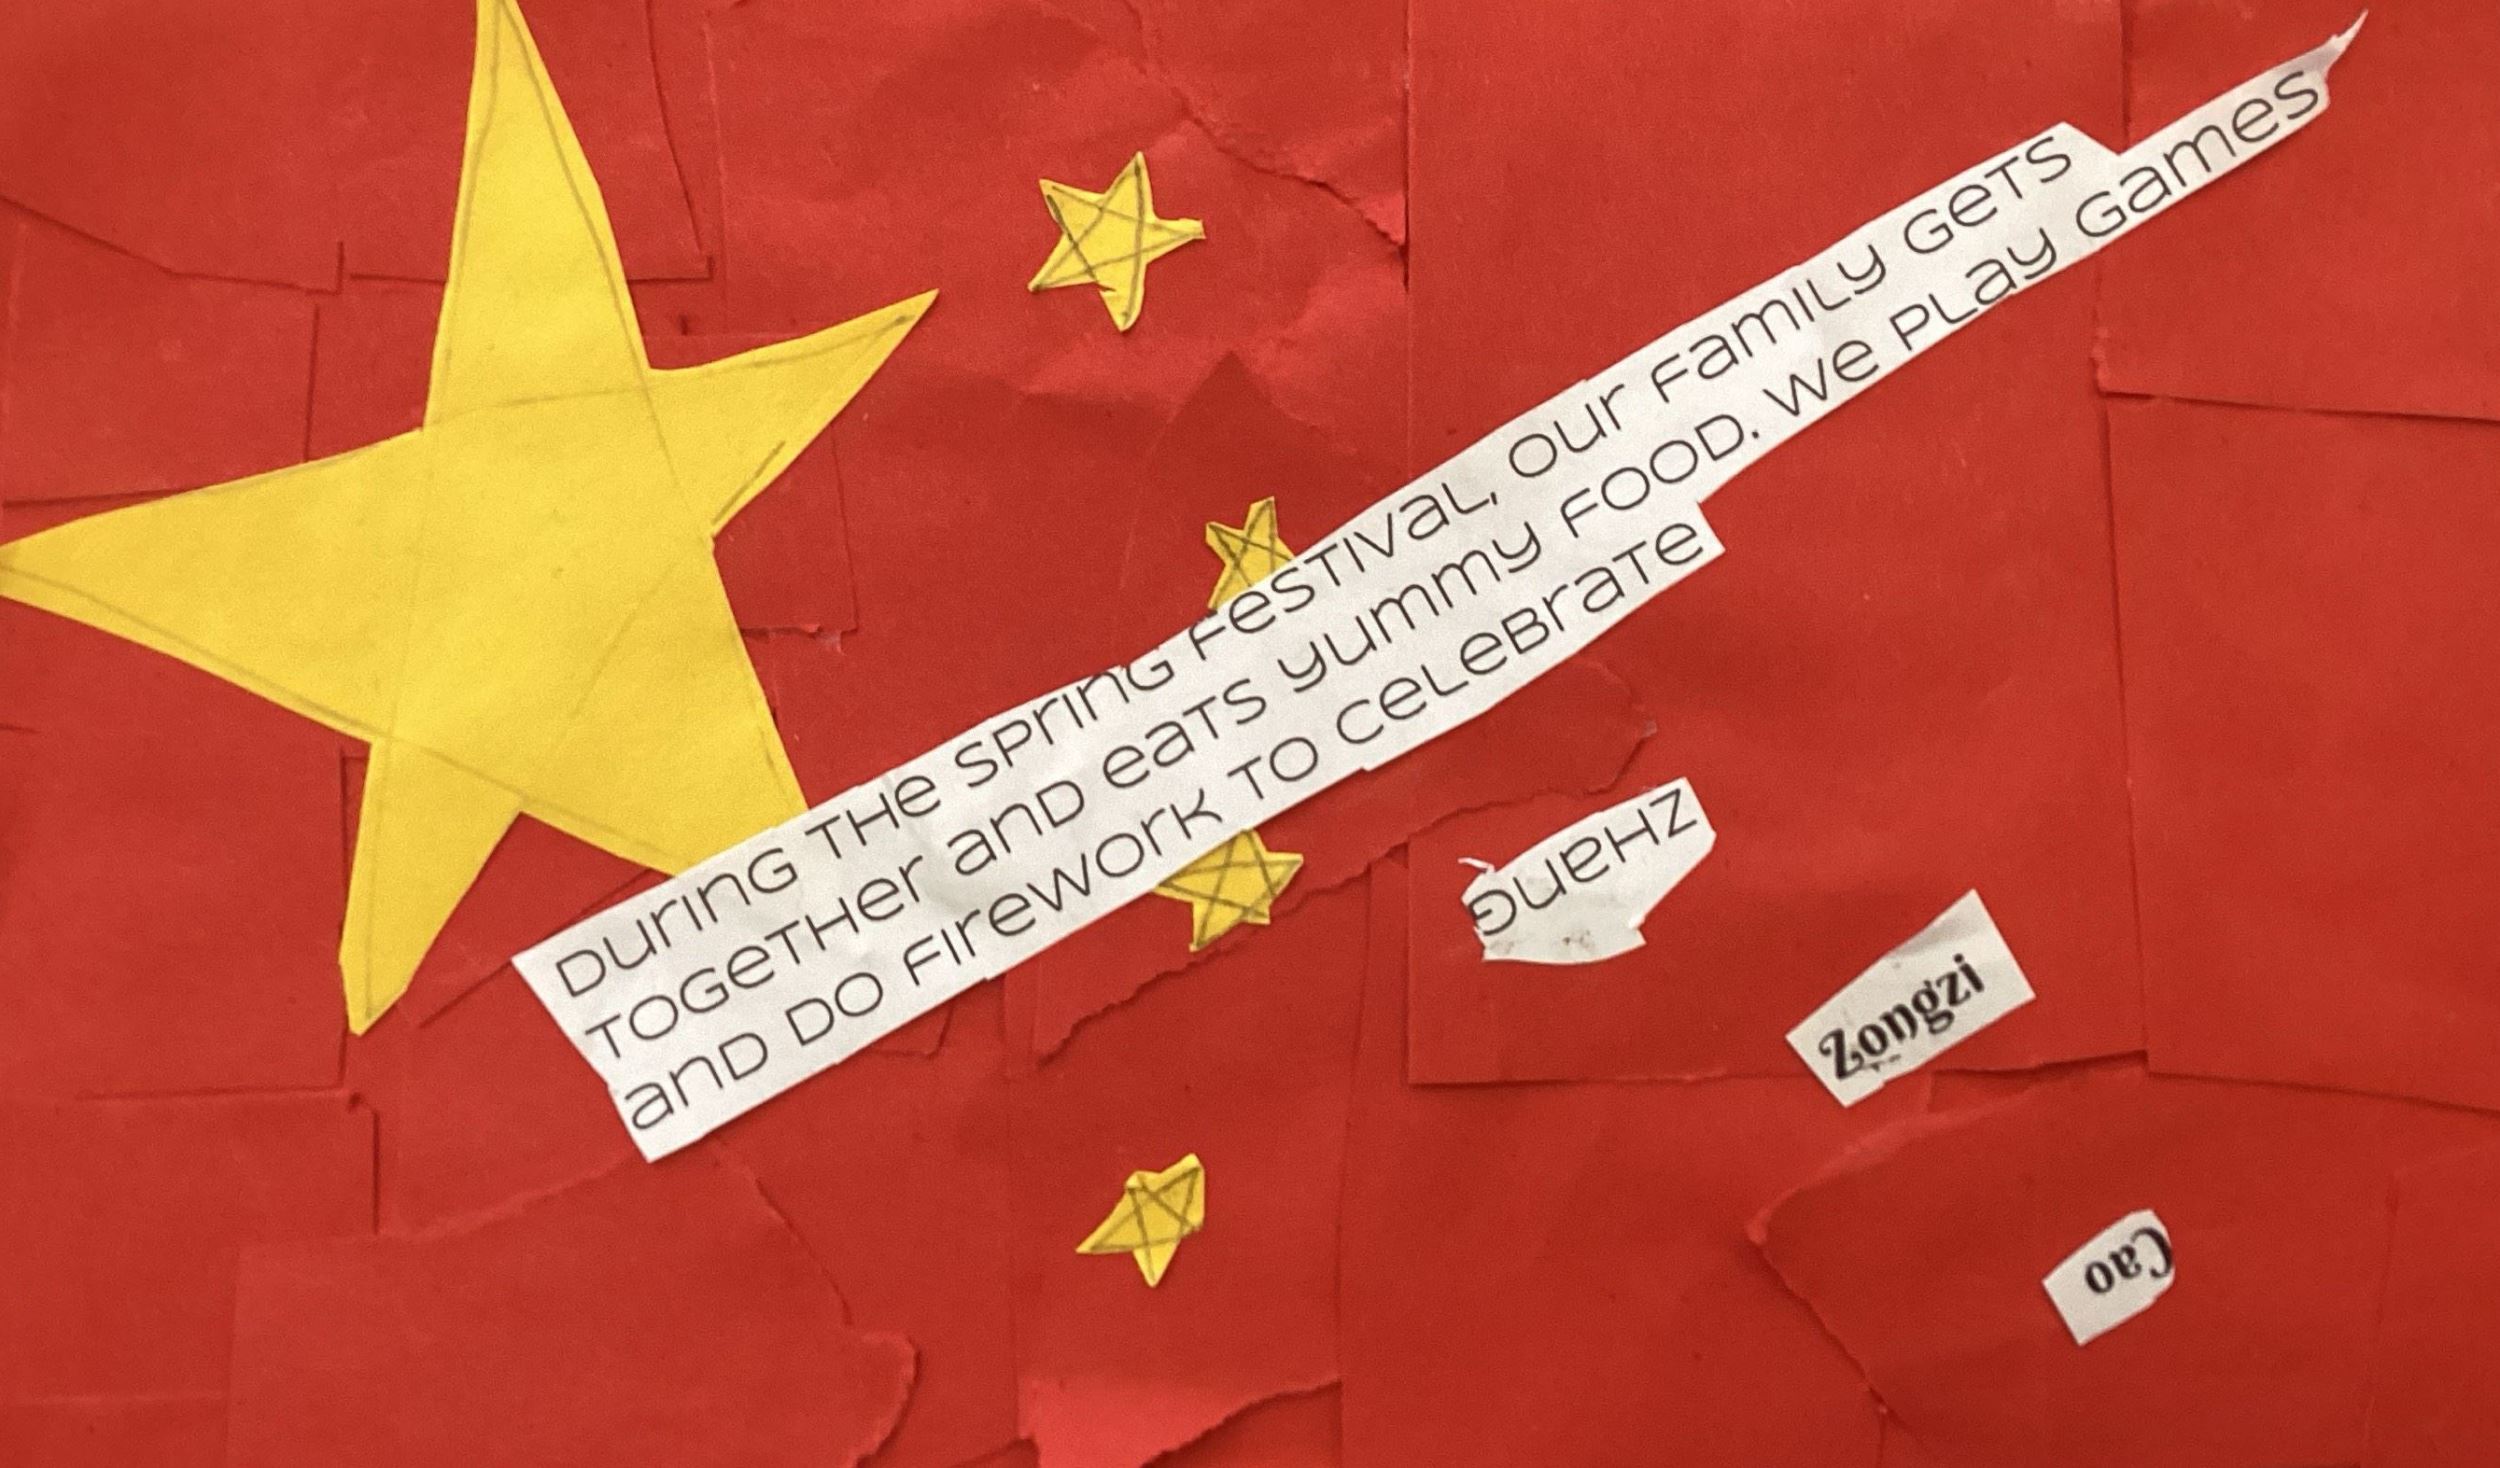 During the Spring Festival, our family gets
together and eats yummy food. We play games
and do firework to celebrate
Zhang
Zongzi
Cao